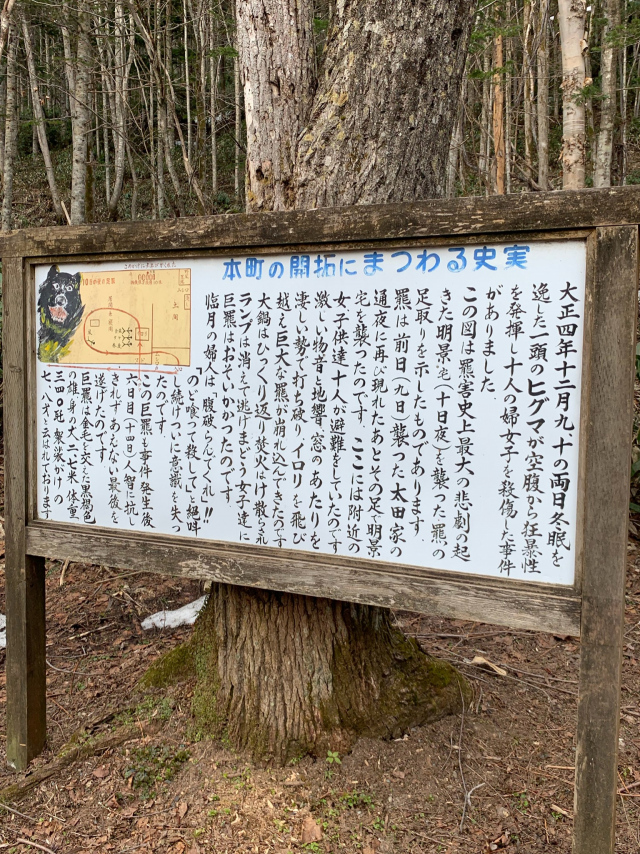 本町の開拓にまつわる史実
大正四年十二月九十の両日冬眠を
逸した一頭のヒグマが空腹から狂暴性
を発揮し十人の婦女子を殺傷した事件
がありました
この図は羆害史上最大の悲劇の起
きた明景宅(十日夜)を襲った羆の
足取りを示したものであります。
羆は前日(九日)襲った太田家の
通夜に再び現れたあとその足で明景
宅を襲ったのです。ここには附近の
女子供達十人が避難をしていたのです
激しい物音と地響、窓のあたりを
凄しい勢で打ち破りイロリを飛び
越え巨大な羆が崩れ込んできたのです
大鍋はひっくり返り焚火はけ散られ
ランプは消えて逃げまどう女子達に
巨羆はおそいかかったのです。
臨月の婦人は「腹破らんでくれ!!
「のど喰って殺して」と絶叫
し続けついに意識を失っ
たのです。
この巨羆が事件発生後
六日目(十四日)人智に抗し
きれずあえない最後を
遂げたのです
巨羆は金毛を交えた黒褐色
の雄身の丈二、七米、体重
三四〇瓩
七、八才と云はれております